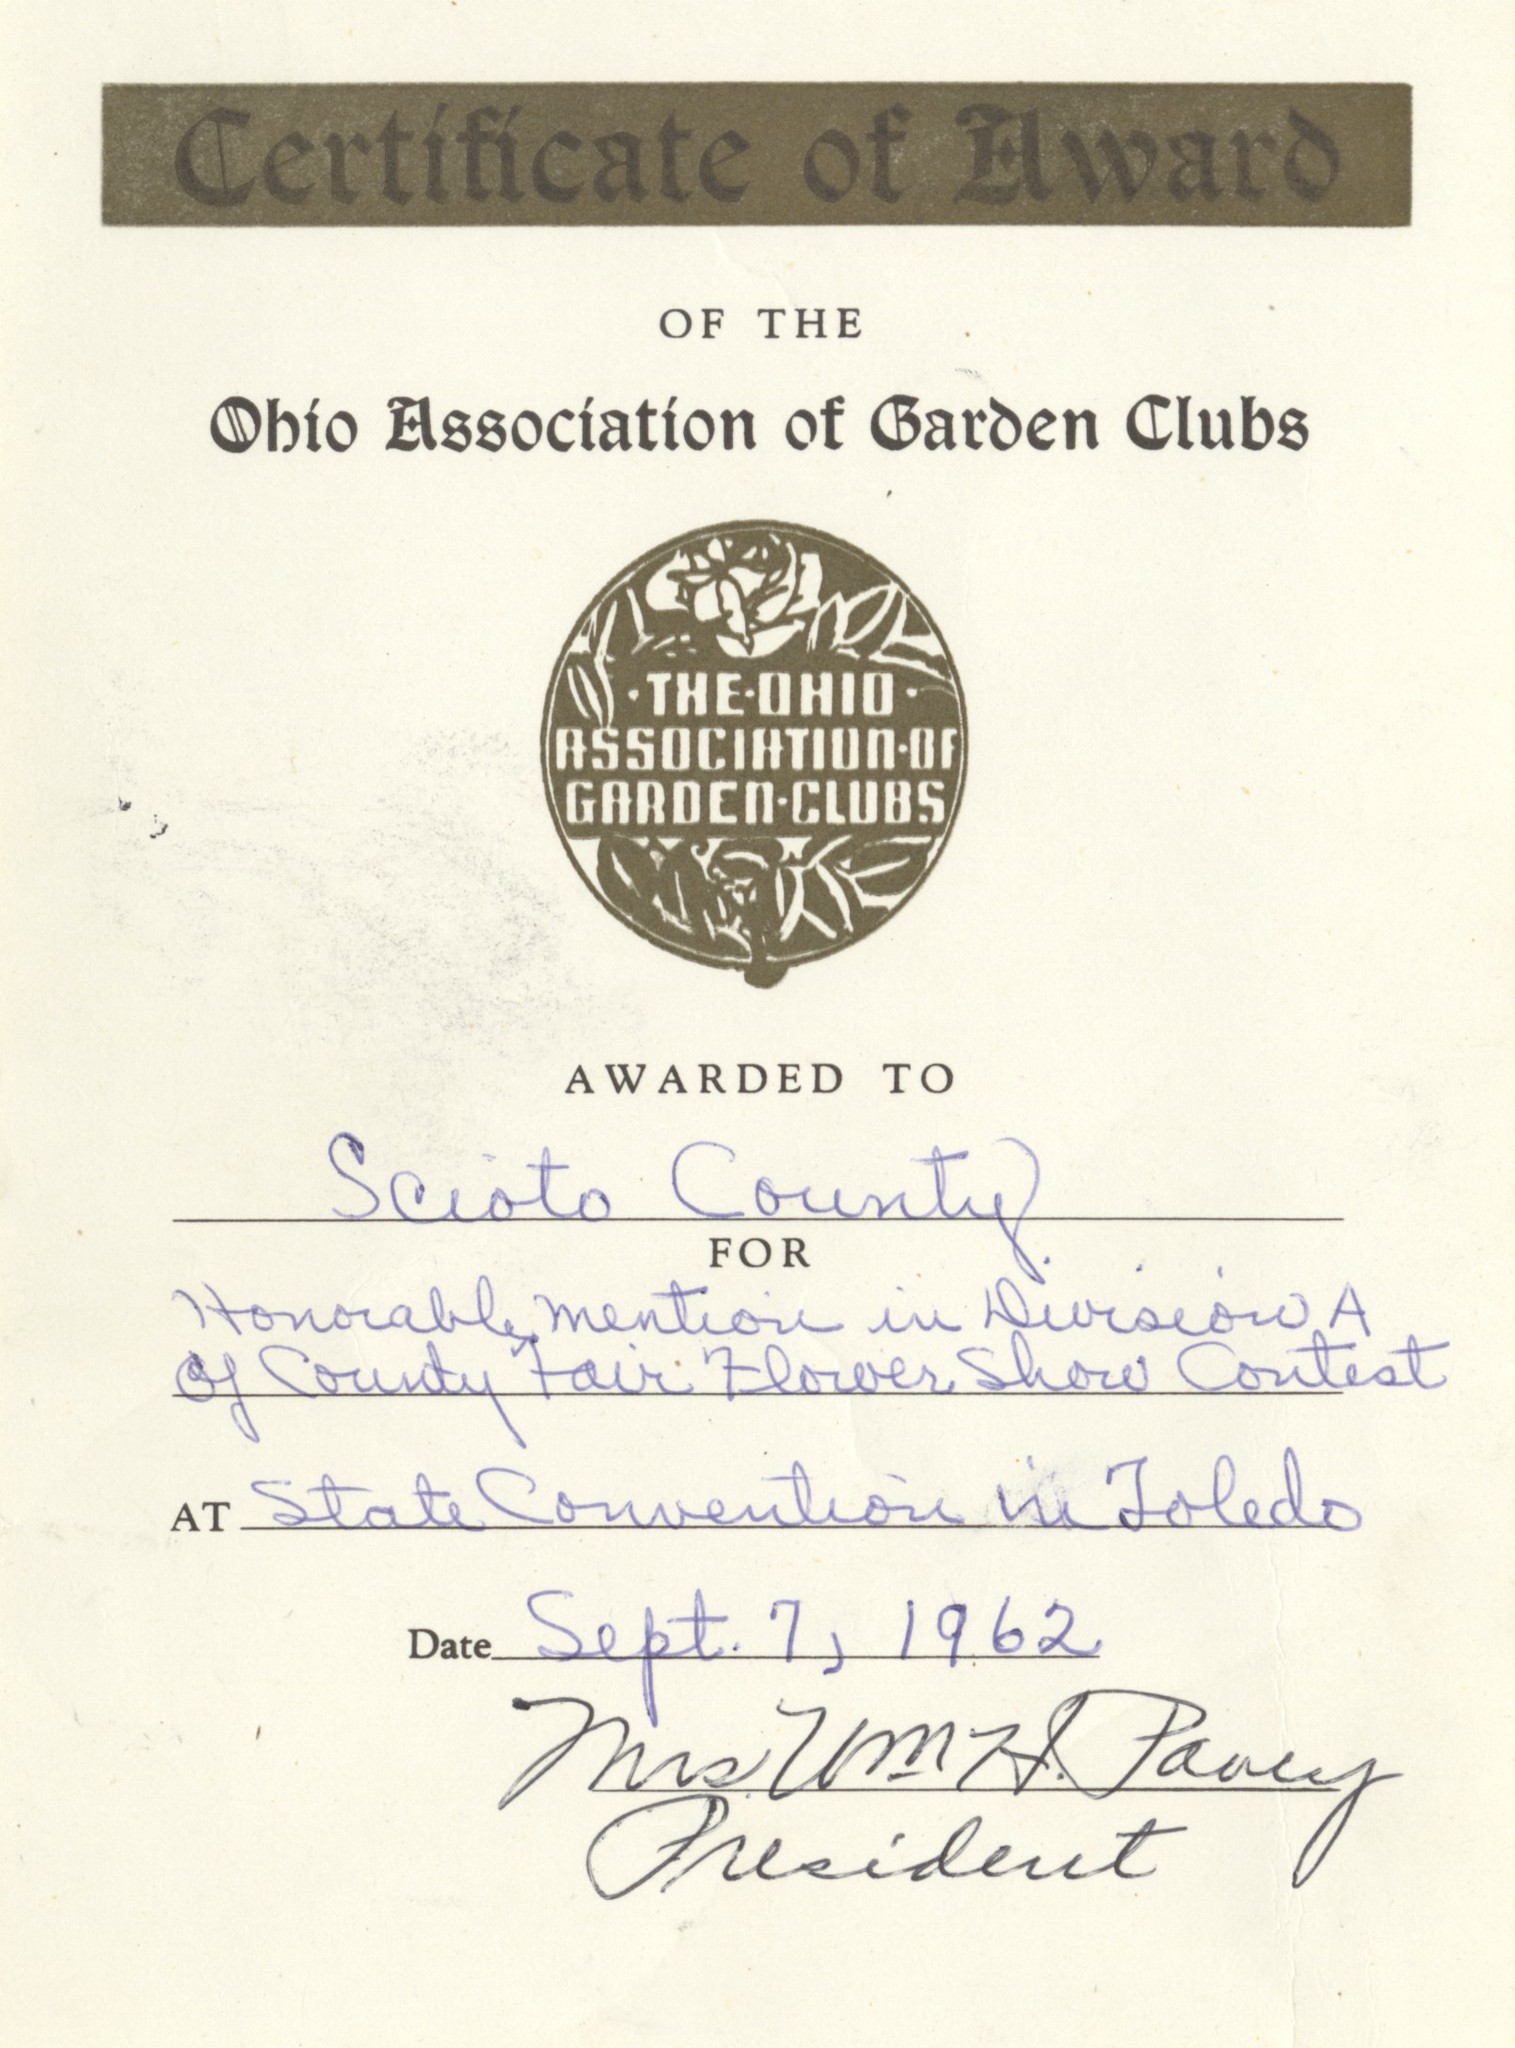 Certificate of Award
OF THE
Ohio Association of Garden Clubs
·THE·OHIO·
ASSOCIATION·OF
GARDEN·CLUBS
AWARDED TO
Scioto County
FOR
Honorable Mention in Division A
of County Fair Flower Show Contest
AT State Convention in Toledo
Date Sept. 7, 1962
Mrs Wm H. Pavey
President